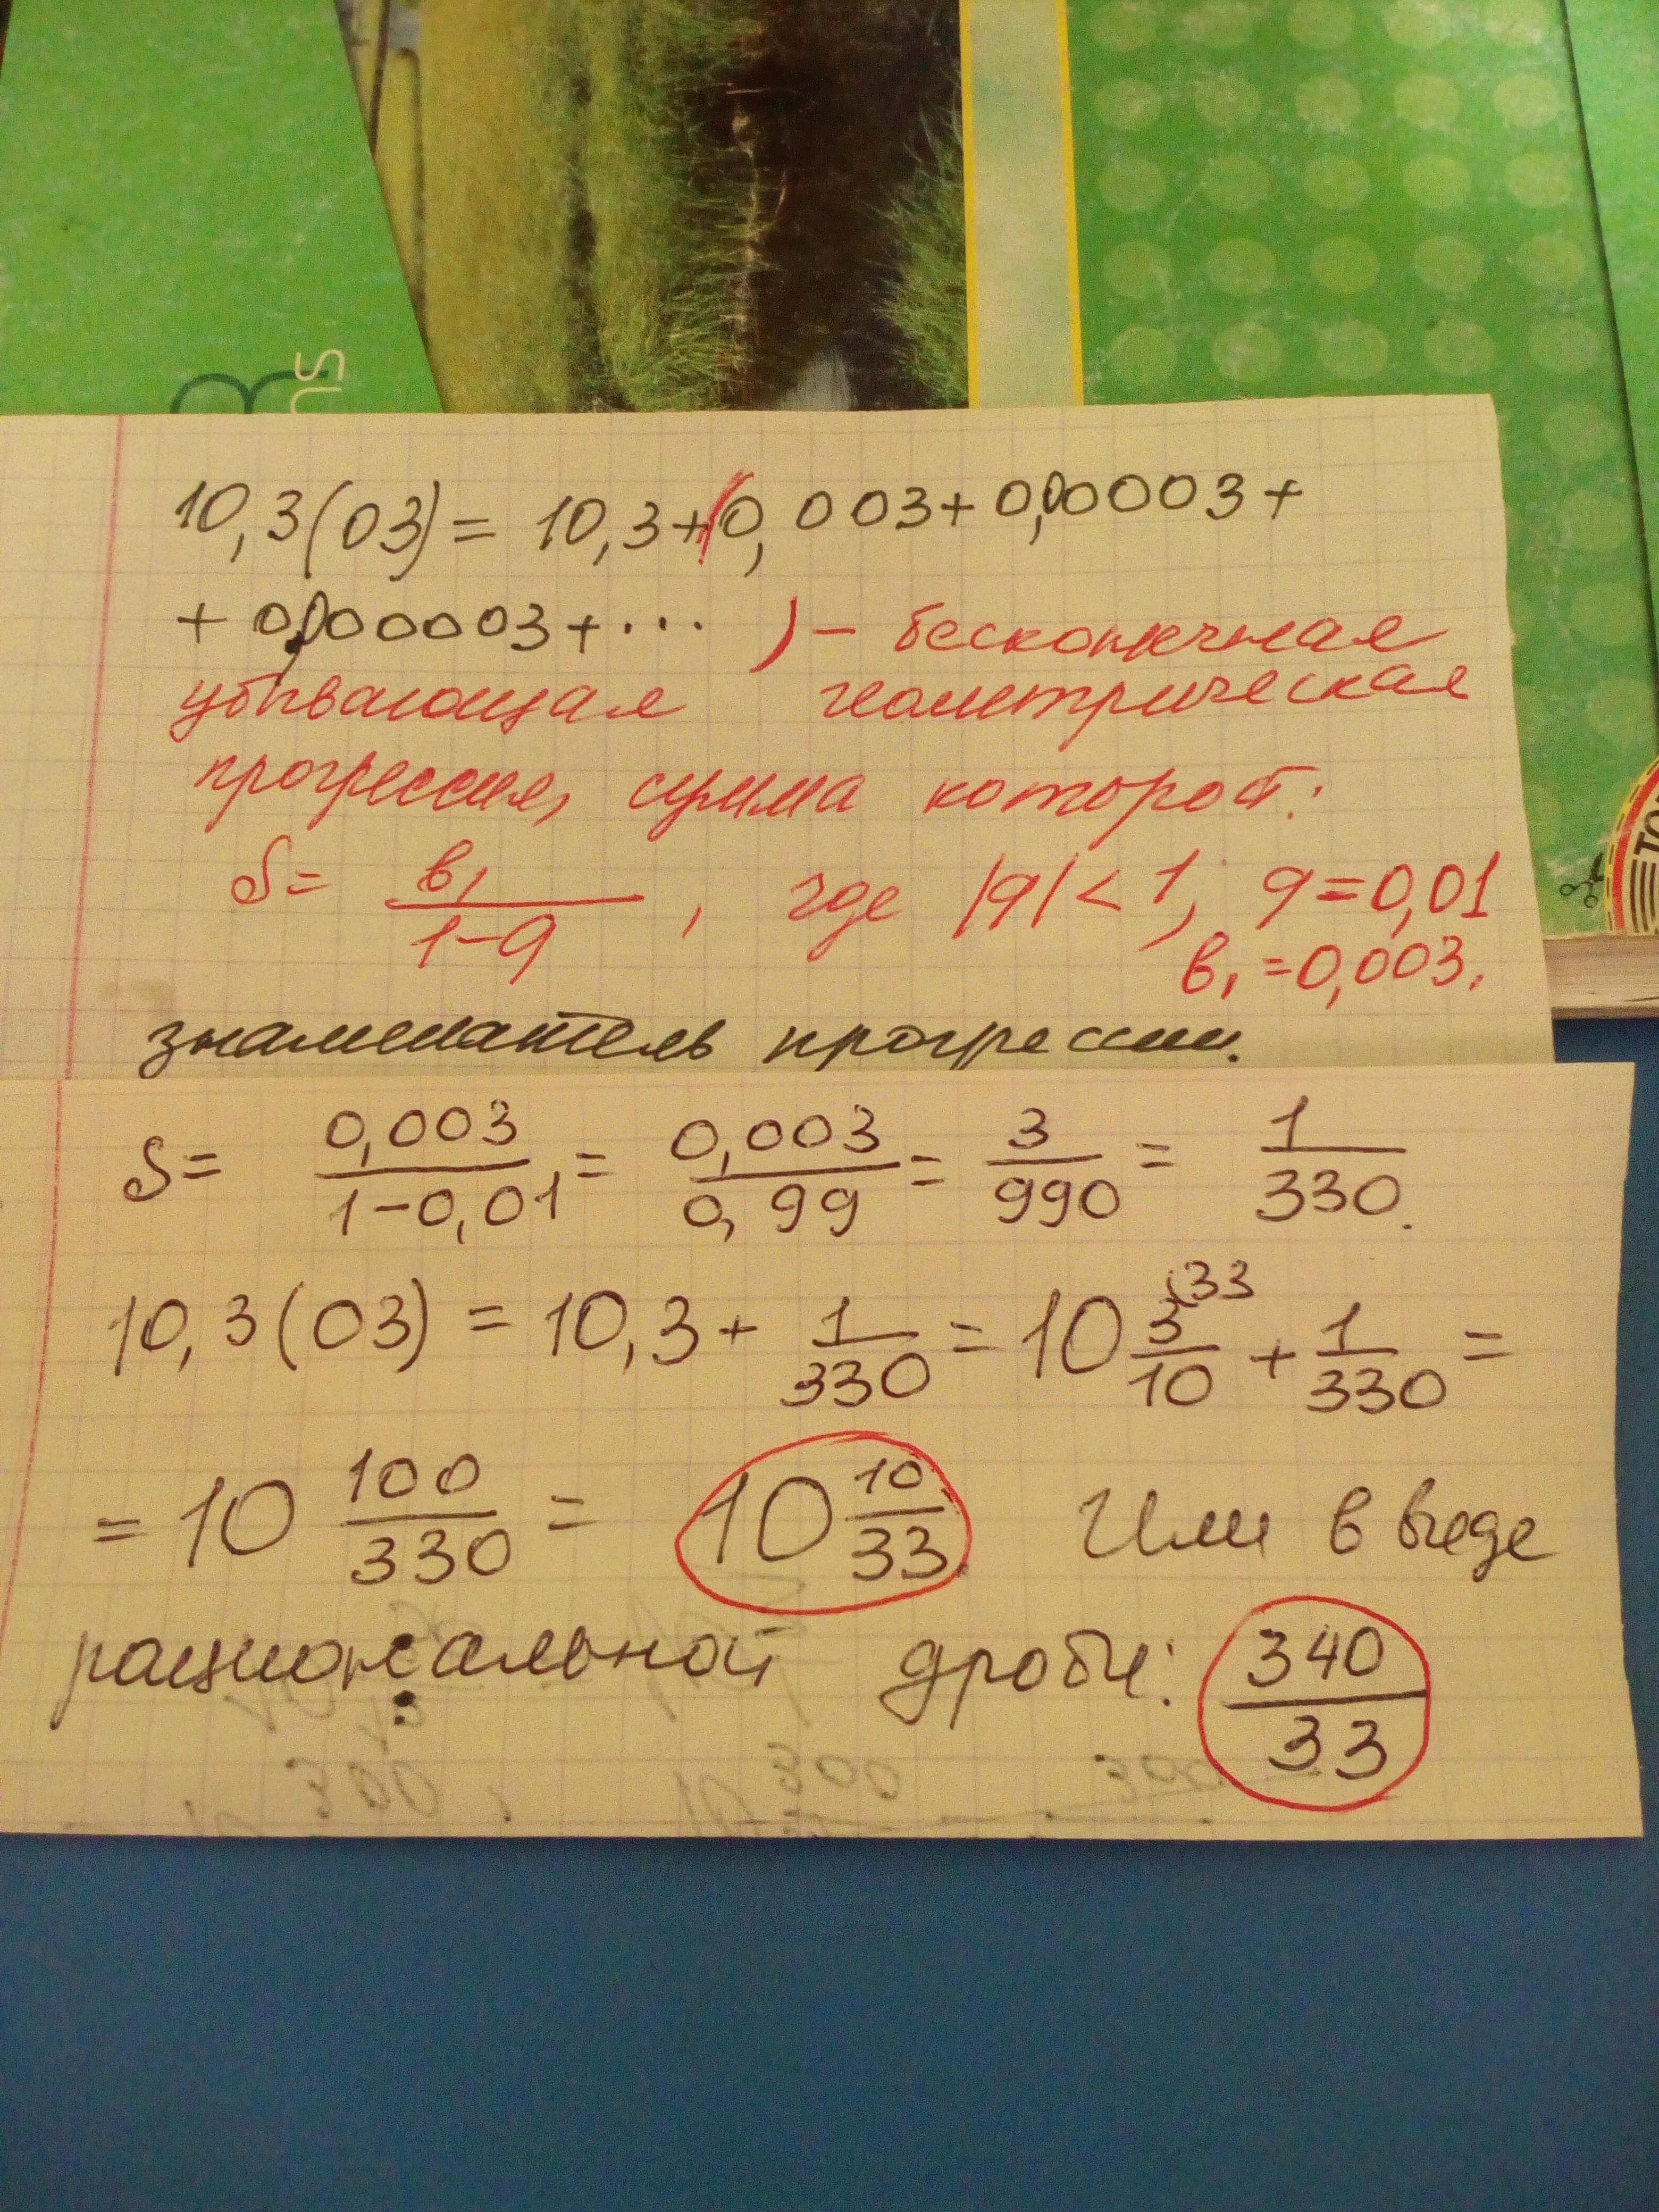 10,3(03) = 10,3 + (0,003 + 0,00003 +
+ 0,0000003 + ... ) – бесконечная
убывающая геометрическая
прогрессия, сумма которой:
S = в₁/(1-q), где |q| < 1, q = 0,01
в₁ = 0,003.
знаменатель прогрессии.
S = 0,003/(1-0,01) = 0,003/0,99 = 3/990 = 1/330.
10,3(03) = 10,3 + 1/330 = 10 3/10 (33 + 1/330 =
= 10 100/330 = 10 10/33. Или в виде
рациональной дроби: 340/33